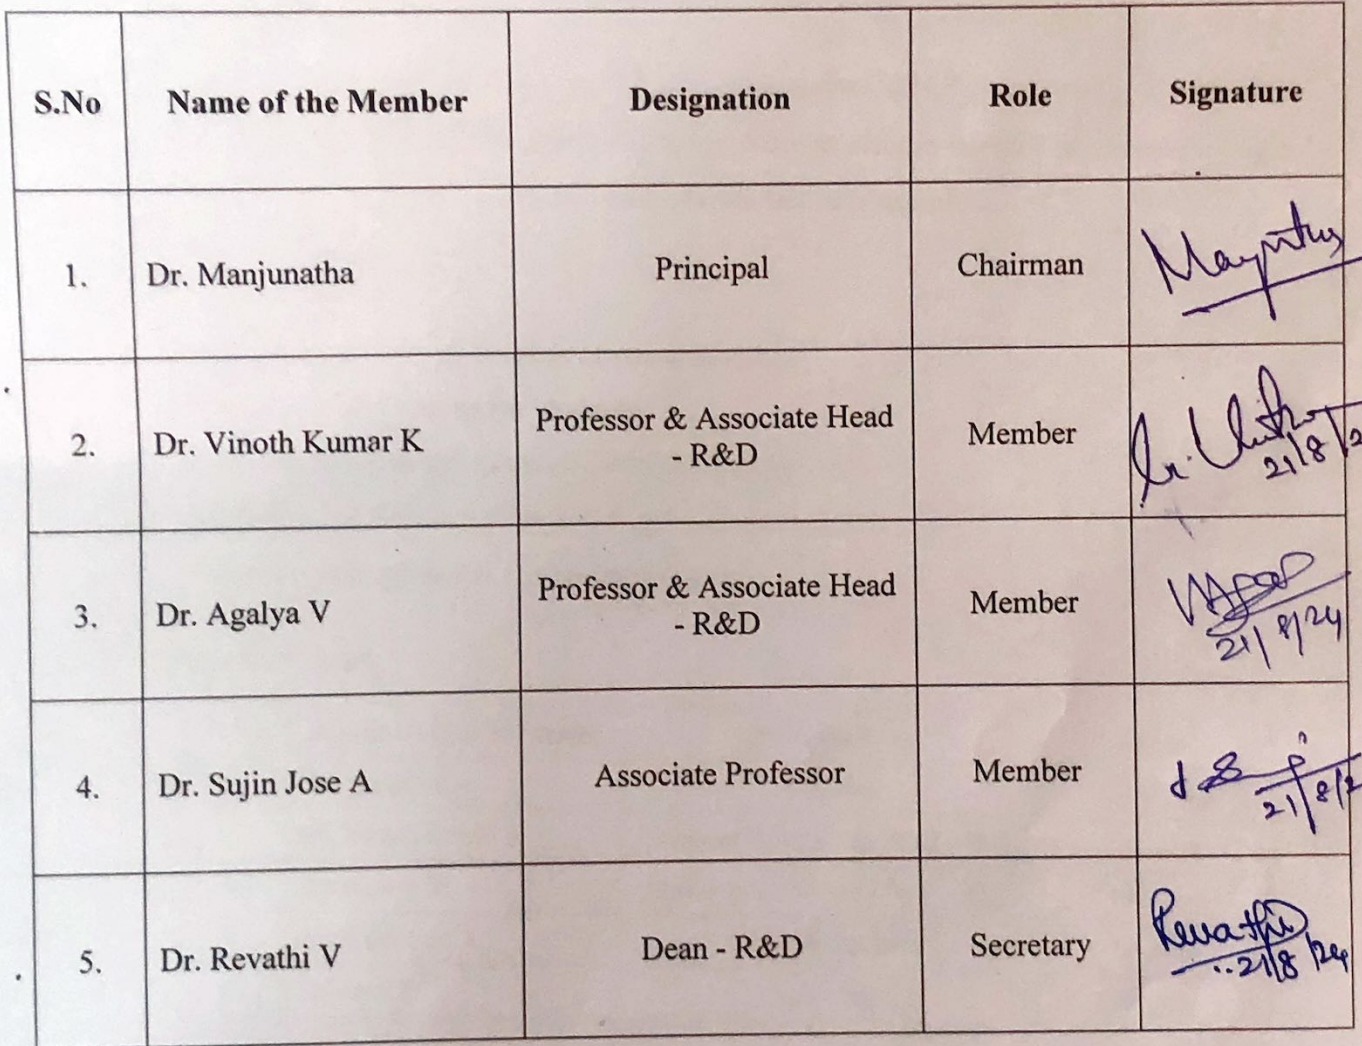 S.No Name of the Member Designation Role Signature
1. Dr. Manjunatha Principal Chairman
2. Dr. Vinoth Kumar K Professor & Associate Head
- R&D Member
21/8/2
3. Dr. Agalya V Professor & Associate Head
- R&D Member
21/8/24
4. Dr. Sujin Jose A Associate Professor Member
21/8/2
5. Dr. Revathi V Dean - R&D Secretary Revathi
21/8/24